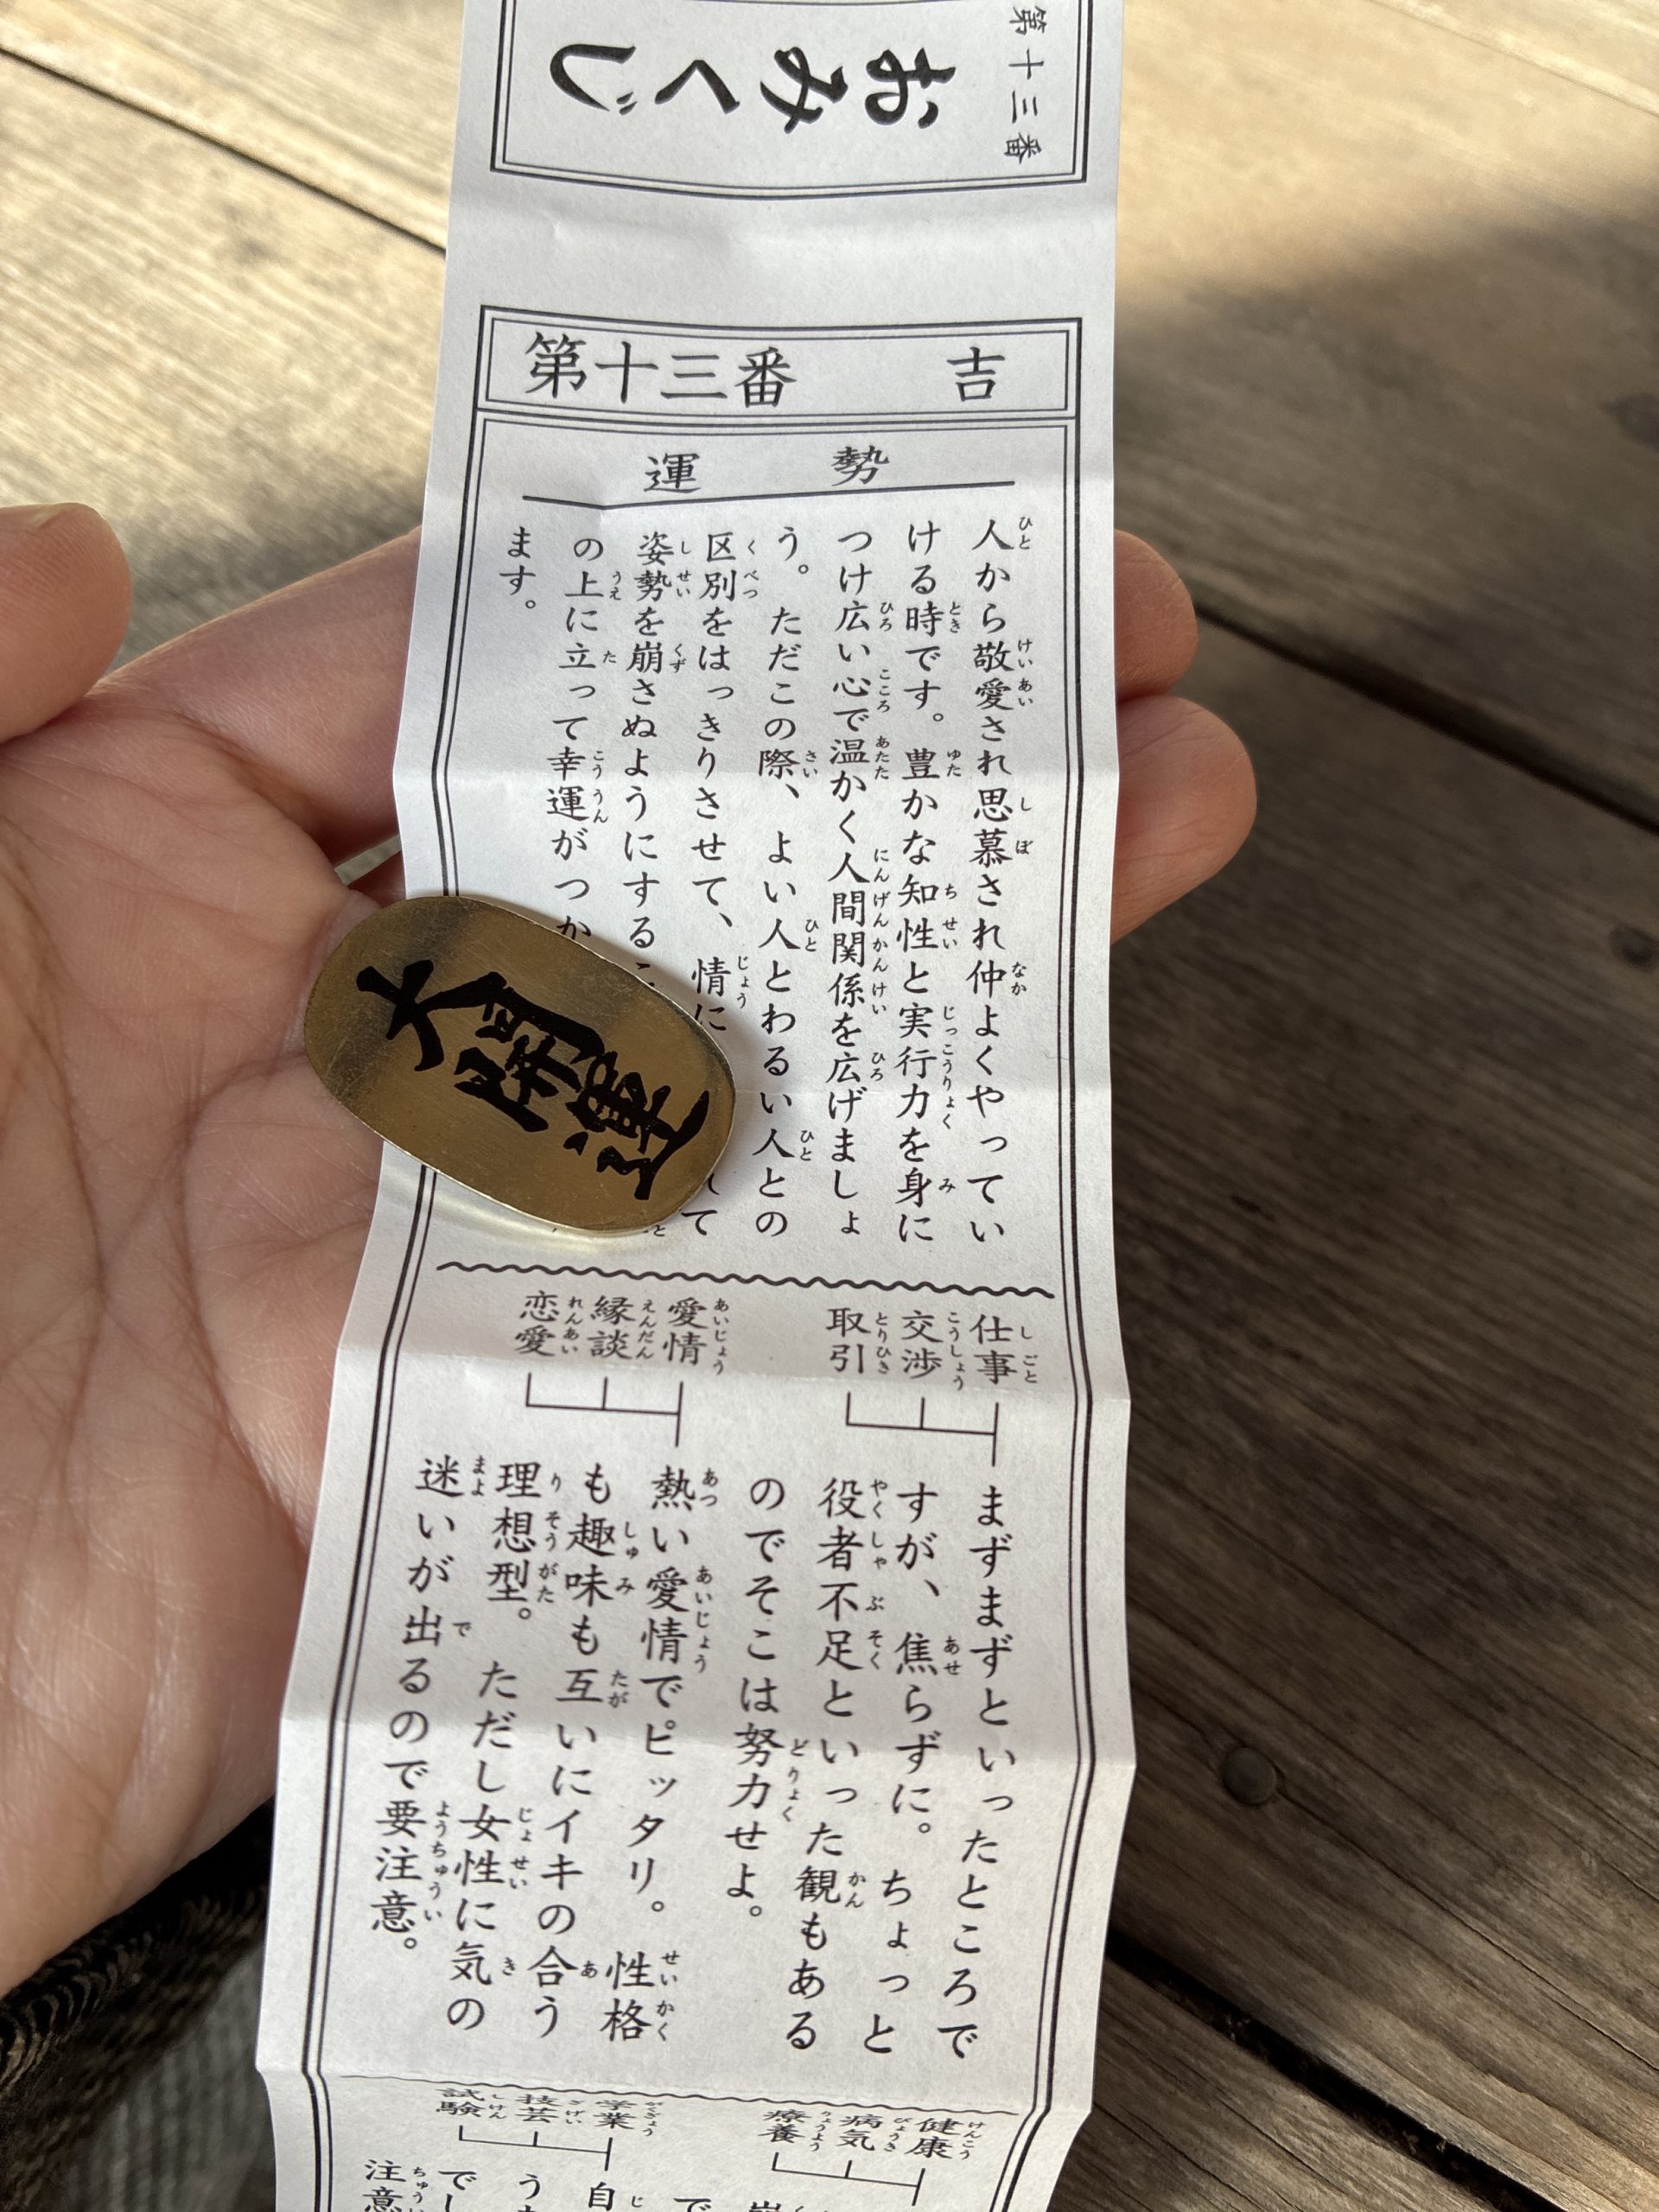 第十三番
おみくじ
第十三番 吉
運勢
人から敬愛され思慕され仲よくやってい
ける時です。豊かな知性と実行力を身に
つけ広い心で温かく人間関係を広げましょ
う。ただこの際、よい人とわるい人との
区別をはっきりさせて、情に
て
姿勢を崩さぬようにする
の上に立って幸運がつか
ます。
大開運
仕事
交渉
取引
まずまずといったところで
すが、焦らずに。ちょっと
役者不足といった観もある
のでそこは努力せよ。
愛情
縁談
恋愛
熱い愛情でピッタリ。性格
も趣味も互いにイキの合う
理想型。ただし女性に気の
迷いが出るので要注意。
健康
病気
療養
学業
技芸
試験
自
う
でし
注意